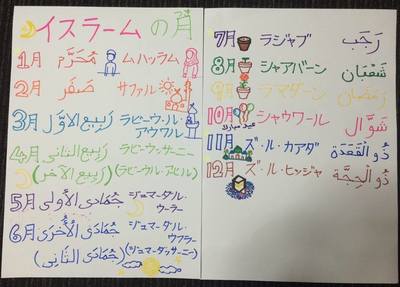 イスラームの月
1月 مُحَرَّم ムハッラム
2月 صَفَر サファル
3月 رَبِيع الأَوَّل ラビーウ・ル・
アウワル
4月 رَبِيع الثَّانِي ラビーウッサーニー
(رَبِيع الآخر) (ラビーウ・ル・アヒル)
5月 جُمَادَى الأُولَى ジュマーダル・
ウーラー
6月 جُمَادَى الأُخْرَى ジュマーダル・
ウフラー
(جُمَادَى الثَّانِي) (ジュマーダッサーニー)
7月 ラジャブ رَجَب
8月 シャアバーン شَعْبَان
9月 ラマダーン رَمَضَان
10月 シャウワール شَوَّال
عيد مبارك
11月 ズ・ル・カアダ ذُو الْقَعْدَة
12月 ズ・ル・ヒッジャ ذُو الْحِجَّة